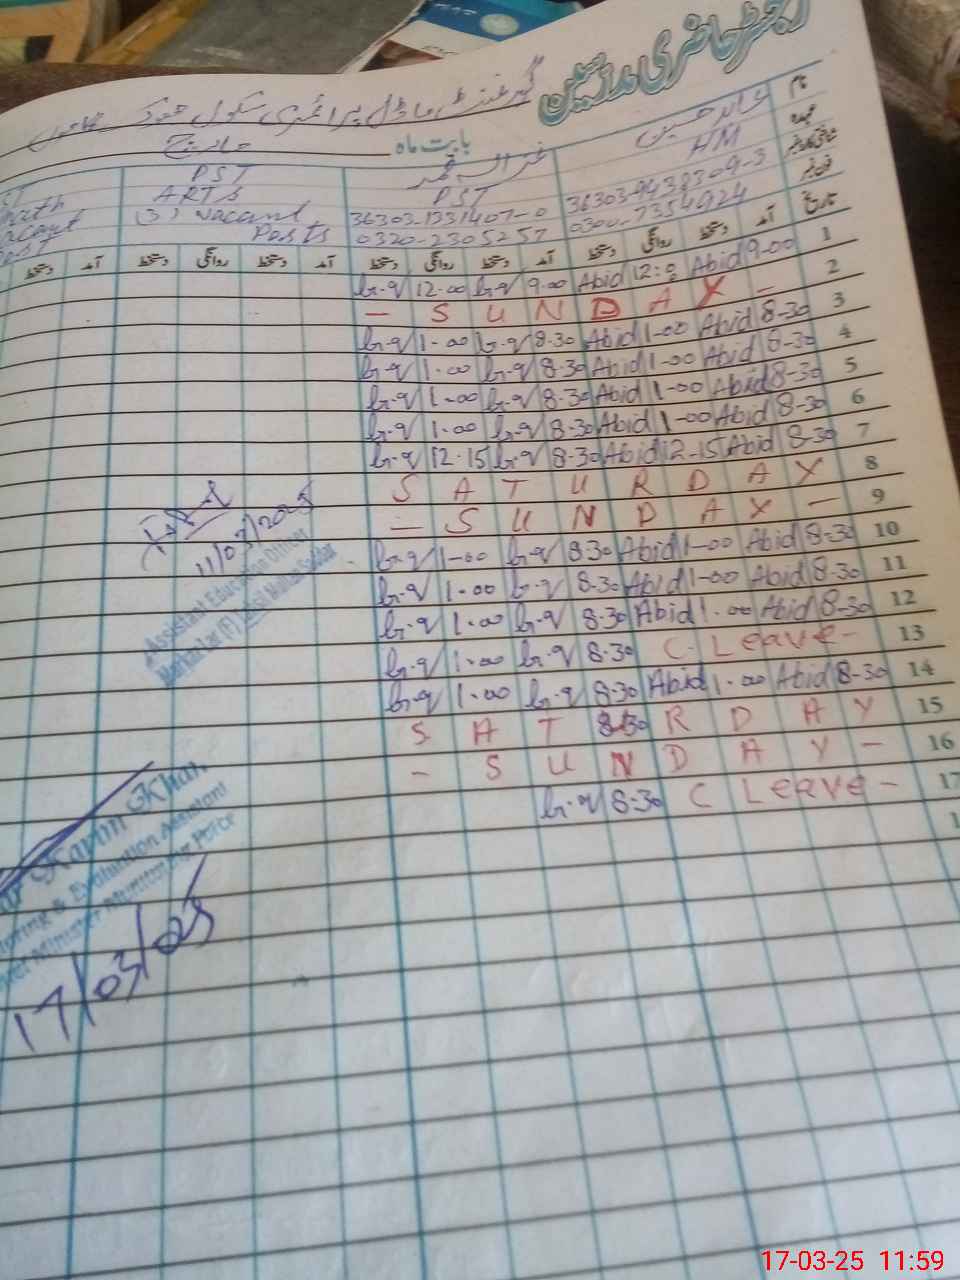 رجسٹر حاضری ملازمین
گورنمنٹ ماڈل پرائمری سکول
بابت ماہ مارچ
نام عابد حسین
عہدہ HM PST PST
شناختی کارڈ نمبر 36303-9438309-3 36303-1331407-0 ARTS Math
فون نمبر 0300-7354924 0320-2305257 (3) Vacant Posts
تاریخ آمد دستخط روانگی دستخط آمد دستخط روانگی دستخط آمد دستخط روانگی دستخط آمد دستخط
1 9-00 Abid 12:0 Abid 9.00 G-q 12.00 G-q
2 — S U N D A Y —
3 8-30 Abid 1-00 Abid 8.30 G-q 1-00 G-q
4 8-30 Abid 1-00 Abid 8.30 G-q 1.00 G-q
5 8-30 Abid 1-00 Abid 8.30 G-q 1-00 G-q
6 8-30 Abid 1-00 Abid 8-30 G-q 1.00 G-q
7 8-30 Abid 12-15 Abid 8.30 G-q 12.15 G-q
8 S A T U R D A Y
9 — S U N D A Y —
10 8-30 Abid 1-00 Abid 8.30 G-q 1-00 G-q
11 8.30 Abid 1-00 Abid 8.30 G-q 1.00 G-q
12 8-30 Abid 1.00 Abid 8.30 G-q 1.00 G-q
13 C. Leave - 8.30 G-q 1.00 G-q
14 8-30 Abid 1.00 Abid 8.30 G-q 1.00 G-q
15 S A T 8.30 R D A Y
16 - S U N D A Y -
17 C Leave - 8.30 G-q
11/03/2025
Assistant Education Officer
Markaz (F) Tehsil Multan Saddar
Karim Khan
Monitoring & Evaluation Assistant
Chief Minister Monitoring Force
17/03/25
17-03-25 11:59